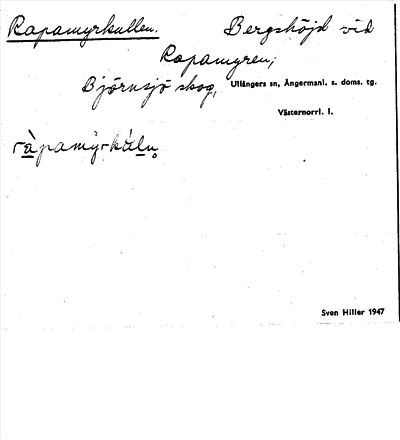 Rapamyrkullen. Bergshöjd vid
Rapamyren;
Björnsjö skog, Ullångers sn, Ångermanl. s. doms. tg.
Västernorrl. l.
ràpamỳrkùln̥
Sven Hiller 1947